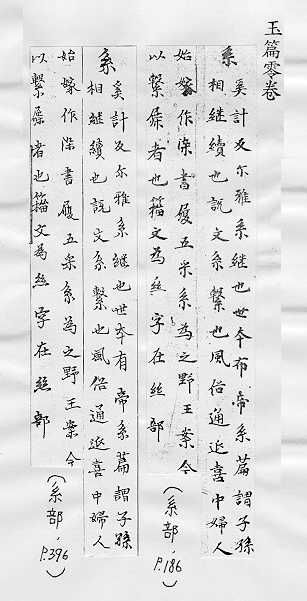 玉篇零卷
系
奚計反尔雅系継也世本布帝系篇謂子孫
相継續也說文系繫也風俗通延喜中婦人
始嫁作柒書履五采系為之野王案今
以繫屐者也籀文為絲字在絲部
(系部, P.186)
系
奚計反尔雅系継也世本有帝系篇謂子孫
相継續也說文系繫也風俗通延喜中婦人
始嫁作柒書履五采系為之野王案今
以繫屐者也籀文為絲字在絲部
(系部, P.396)